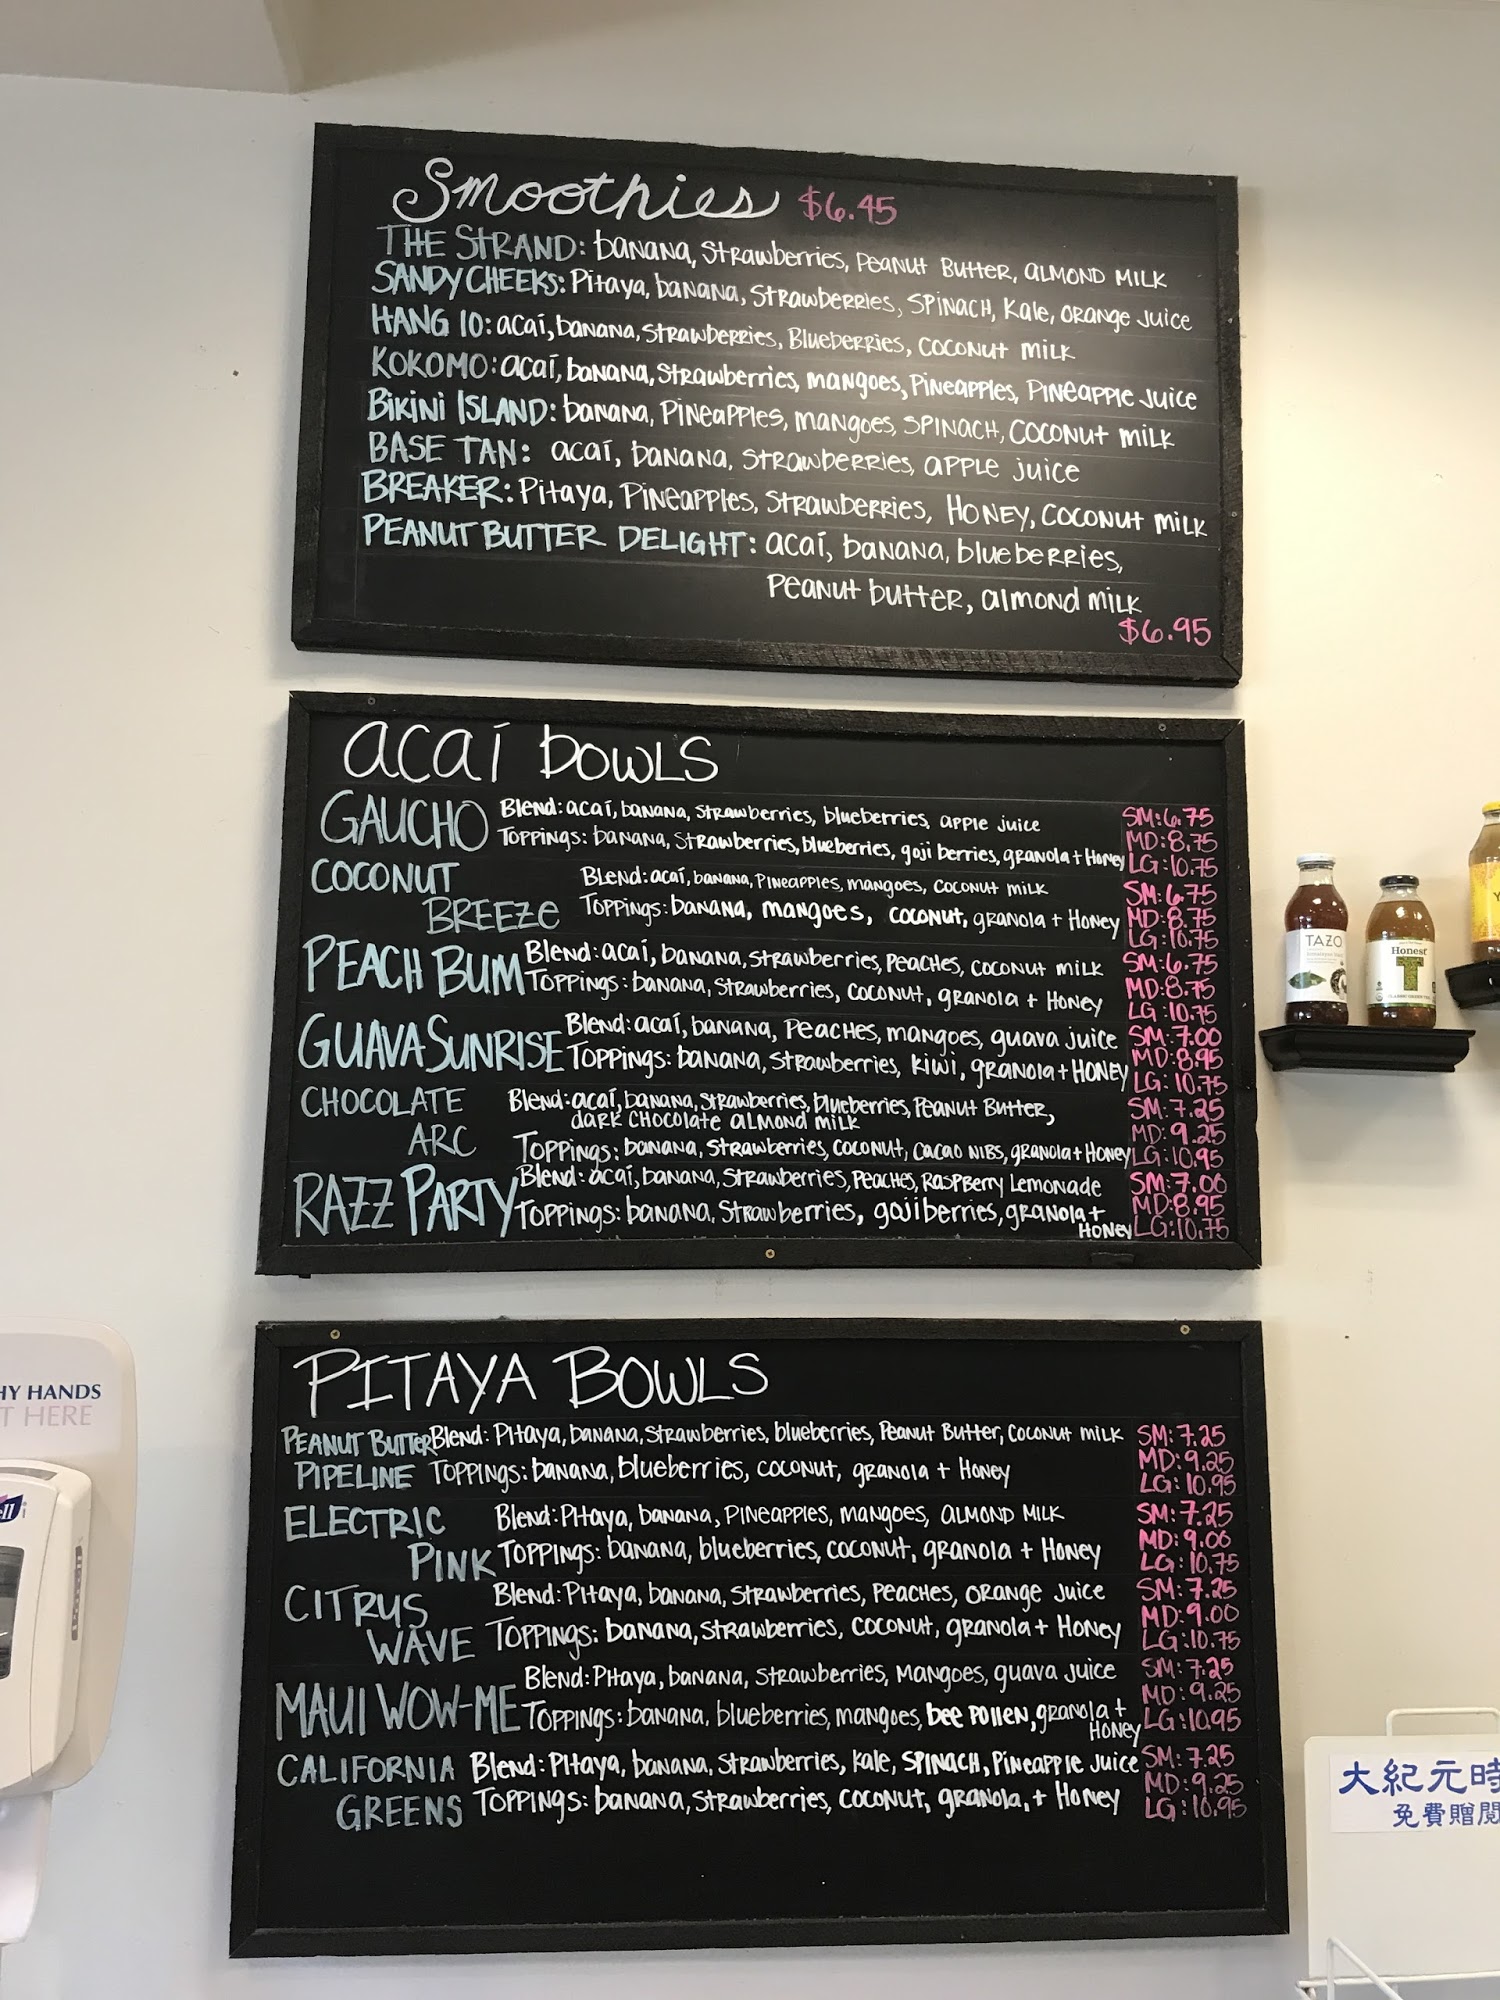 Smoothies $6.45
THE STRAND: banana, strawberries, peanut butter, almond milk
SANDY CHEEKS: Pitaya, banana, strawberries, spinach, kale, orange juice
HANG 10: acaí, banana, strawberries, Blueberries, coconut milk
KOKOMO: acaí, banana, strawberries, mangoes, pineapples, pineapple juice
Bikini ISLAND: banana, pineapples, mangoes, spinach, coconut milk
BASE TAN: acaí, banana, strawberries, apple juice
BREAKER: Pitaya, pineapples, strawberries, Honey, coconut milk
PEANUT BUTTER DELIGHT: acaí, banana, blueberries,
peanut butter, almond milk
$6.95
acaí bowls
GAUCHO Blend: acaí, banana, strawberries, blueberries, apple juice SM: 6.75
Toppings: banana, strawberries, blueberries, goji berries, granola + Honey MD: 8.75
LG: 10.75
COCONUT Blend: acaí, banana, pineapples, mangoes, coconut milk SM: 6.75
BREEZE Toppings: banana, mangoes, coconut, granola + Honey MD: 8.75
LG: 10.75
PEACH BUM Blend: acaí, banana, strawberries, peaches, coconut milk SM: 6.75
Toppings: banana, strawberries, coconut, granola + Honey MD: 8.75
LG: 10.75
GUAVA SUNRISE Blend: acaí, banana, peaches, mangoes, guava juice SM: 7.00
Toppings: banana, strawberries, kiwi, granola + Honey MD: 8.95
LG: 10.75
CHOCOLATE Blend: acaí, banana, strawberries, blueberries, peanut butter, SM: 7.25
dark chocolate almond milk MD: 9.25
ARC Toppings: banana, strawberries, coconut, cacao nibs, granola + Honey LG: 10.95
RAZZ PARTY Blend: acaí, banana, strawberries, peaches, raspberry lemonade SM: 7.00
Toppings: banana, strawberries, goji berries, granola + MD: 8.95
Honey LG: 10.75
PITAYA BOWLS
PEANUT BUTTER Blend: Pitaya, banana, strawberries, blueberries, Peanut Butter, coconut milk SM: 7.25
PIPELINE Toppings: banana, blueberries, coconut, granola + Honey MD: 9.25
LG: 10.95
ELECTRIC Blend: Pitaya, banana, pineapples, mangoes, almond milk SM: 7.25
PINK Toppings: banana, blueberries, coconut, granola + Honey MD: 9.00
LG: 10.75
CITRUS Blend: Pitaya, banana, strawberries, peaches, orange juice SM: 7.25
WAVE Toppings: banana, strawberries, coconut, granola + Honey MD: 9.00
LG: 10.75
MAUI WOW-ME Blend: Pitaya, banana, strawberries, mangoes, guava juice SM: 7.25
Toppings: banana, blueberries, mangoes, bee pollen, granola + MD: 9.25
Honey LG: 10.95
CALIFORNIA Blend: Pitaya, banana, strawberries, kale, spinach, pineapple juice SM: 7.25
GREENS Toppings: banana, strawberries, coconut, granola, + Honey MD: 9.25
LG: 10.95
TAZO
Honest
T
HY HANDS
T HERE
ell
大紀元時
免費贈閱